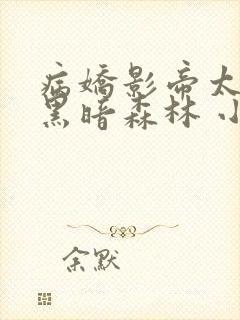 病嬌影帝太
黑暗森林 小
余默